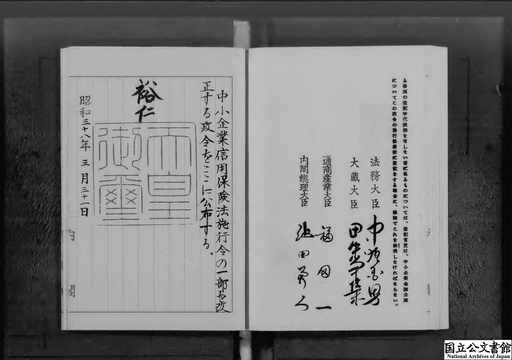 中小企業信用保険法施行令の一部を改
正する政令をここに公布する。
裕仁
天皇
御璽
昭和三十八年三月三十一日
法務大臣 中垣國男
大蔵大臣 田中角榮
通商産業大臣 福田一
内閣総理大臣 池田勇人
国立公文書館
National Archives of Japan